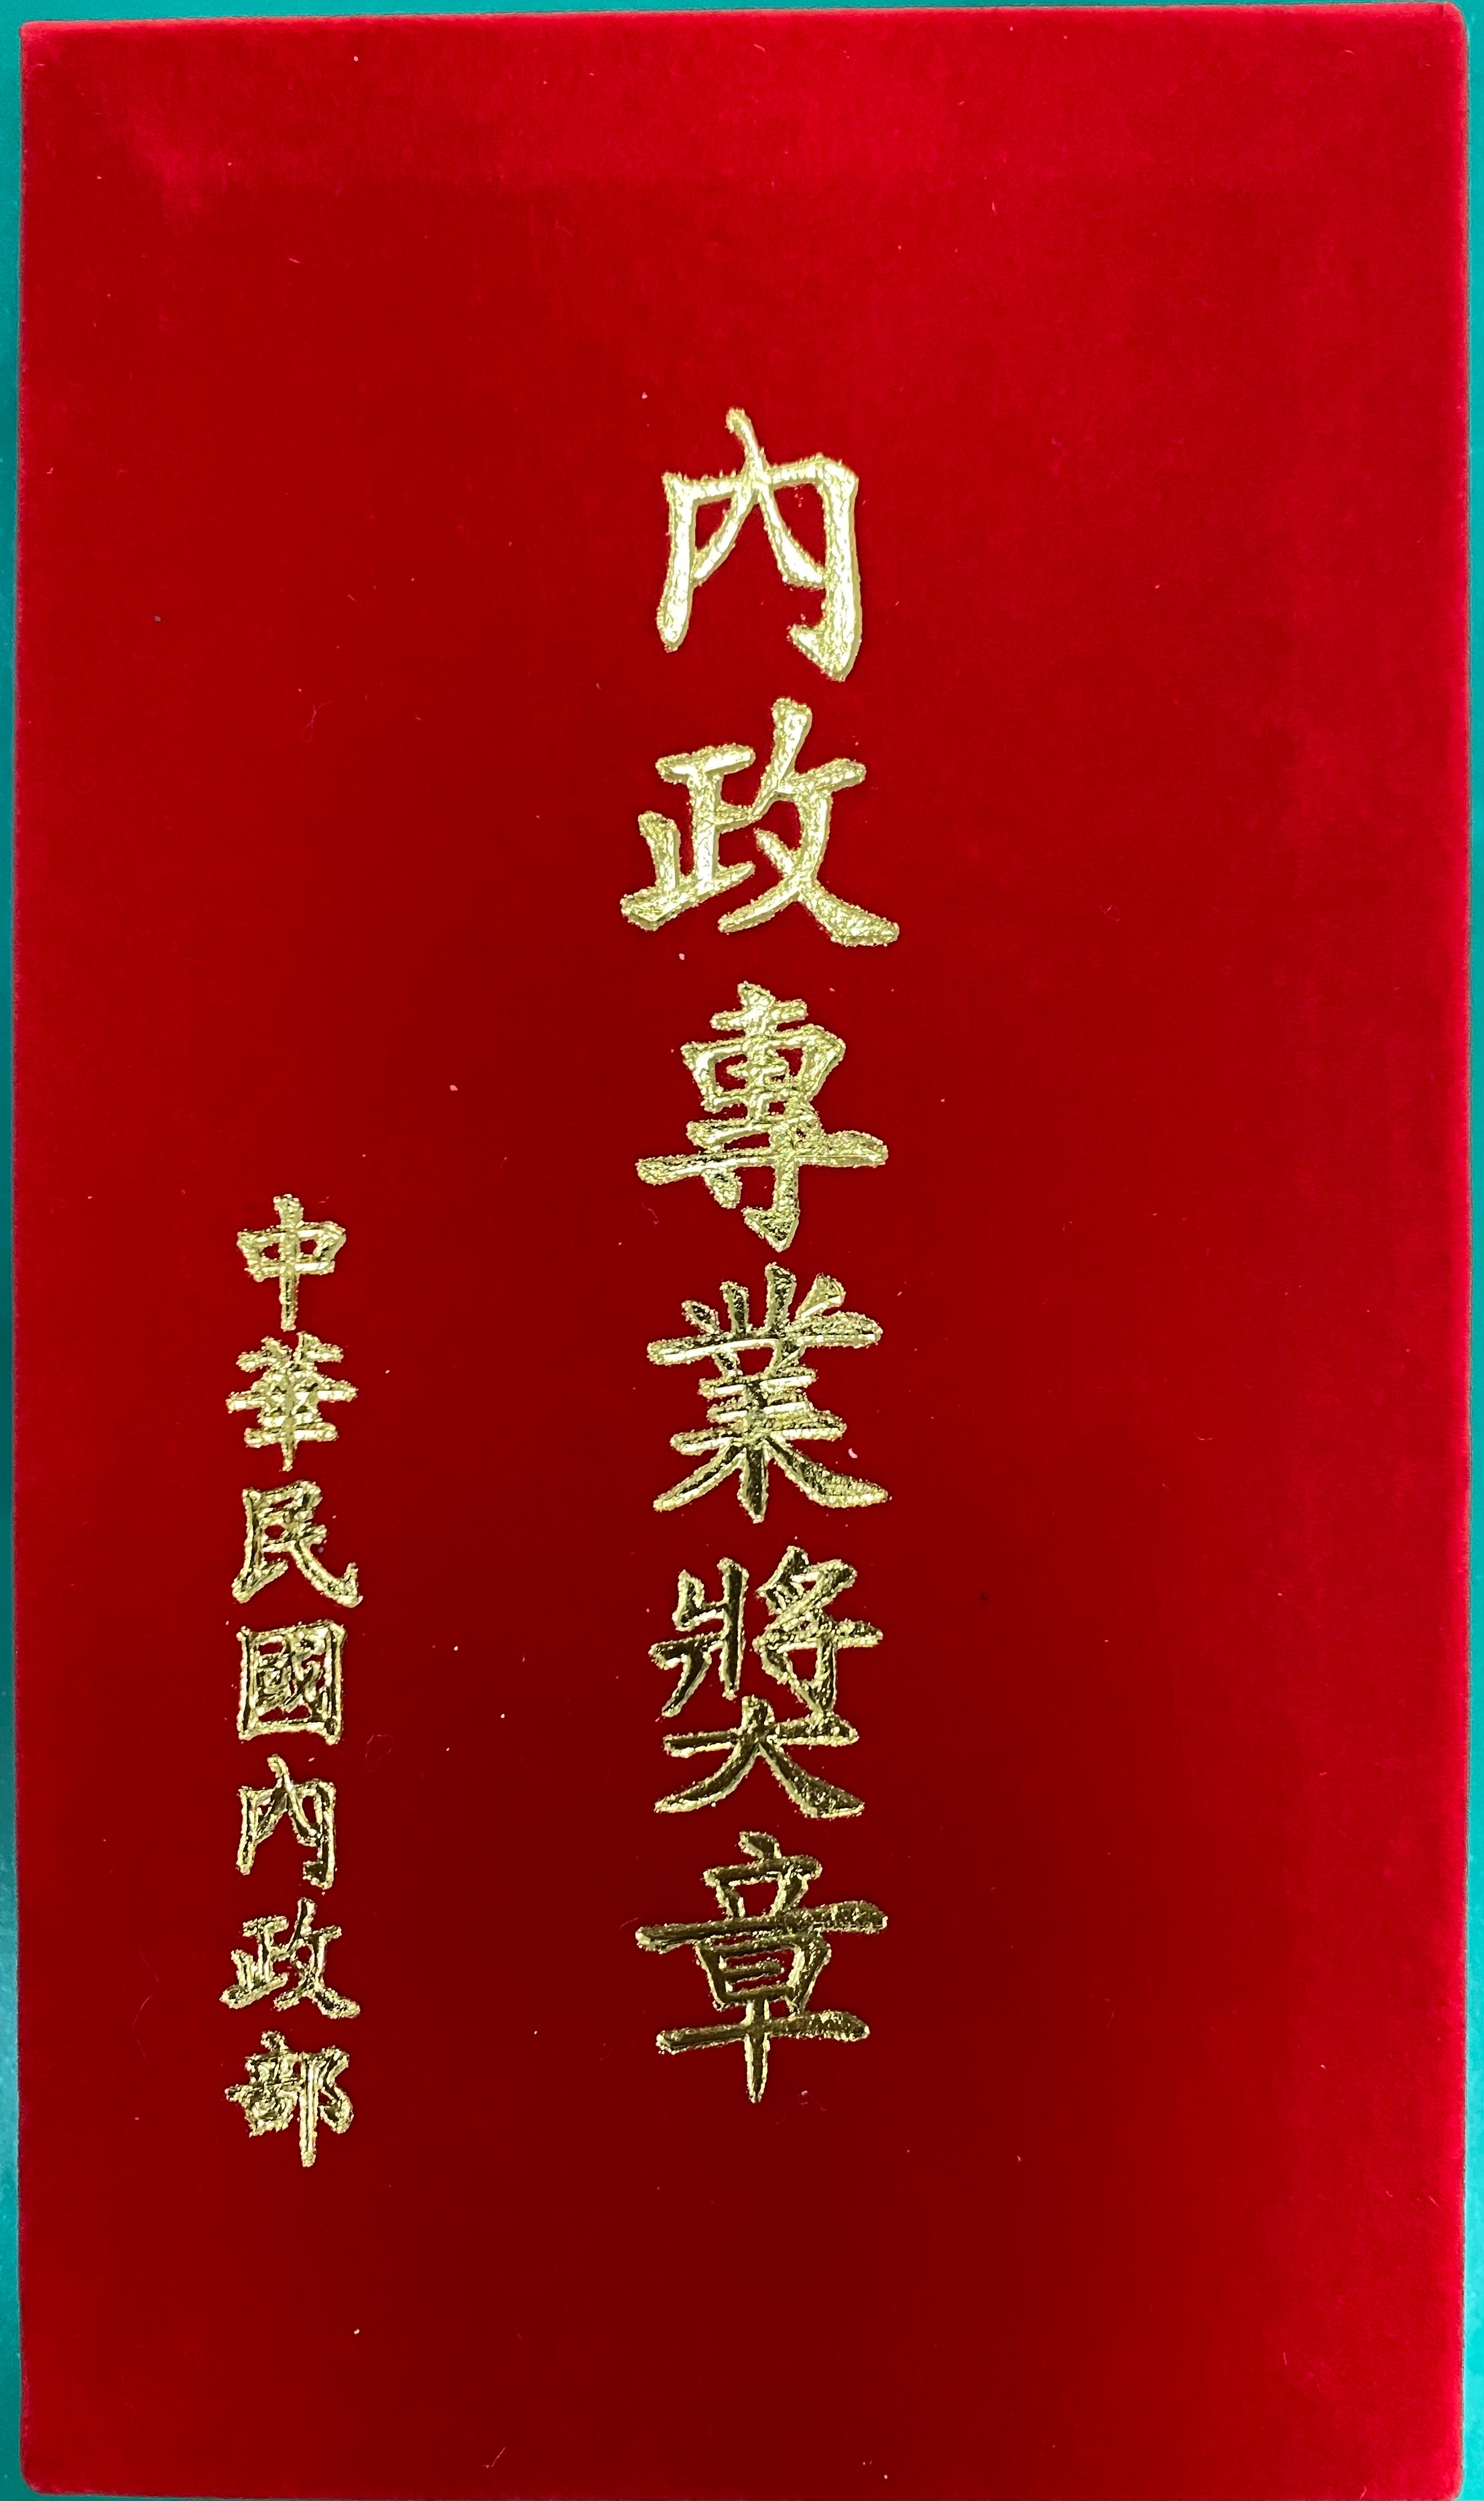 內政專業獎章
中華民國內政部